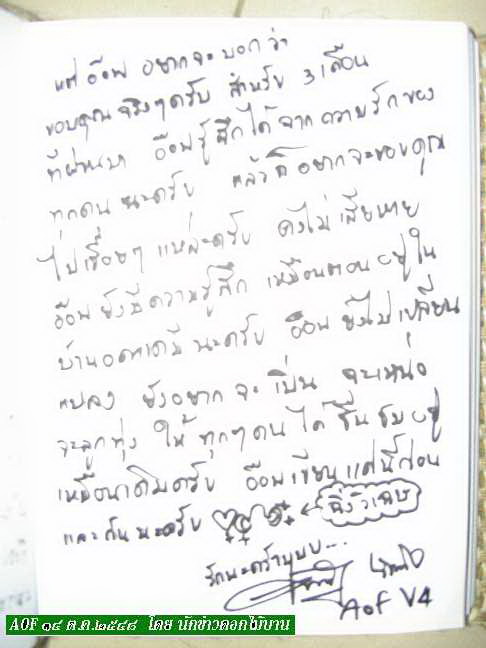 แต่ อ๊อฟ อยากจะบอกว่า
ขอบคุณ จริงๆครับ สำหรับ 3 เดือน
ที่ผ่านมา อ๊อฟรู้สึกได้จากความรักของ
ทุกคน นะครับ แล้วก็อยากจะขอบคุณ
ไปเรื่อยๆ แหละครับ คงไม่เสียหาย
อ๊อฟ ยังมีความรู้สึก เหมือนตอนอยู่ใน
บ้านอคาเดมี่นะครับ อ๊อฟ ยังไม่เปลี่ยน
แปลง ยังอยาก จะ เป็น
ให้ ทุกๆคน ได้ ชื่นชมอยู่
เหมือนเดิมครับ อ๊อฟเขียนแค่นี้ก่อน
แล้วกันนะครับ
รักนะคร้าบบบ...
Aof V4
AOF ๑๙ ต.ค.๒๕๕๘ โดย นักข่าวดอกไม้บาน